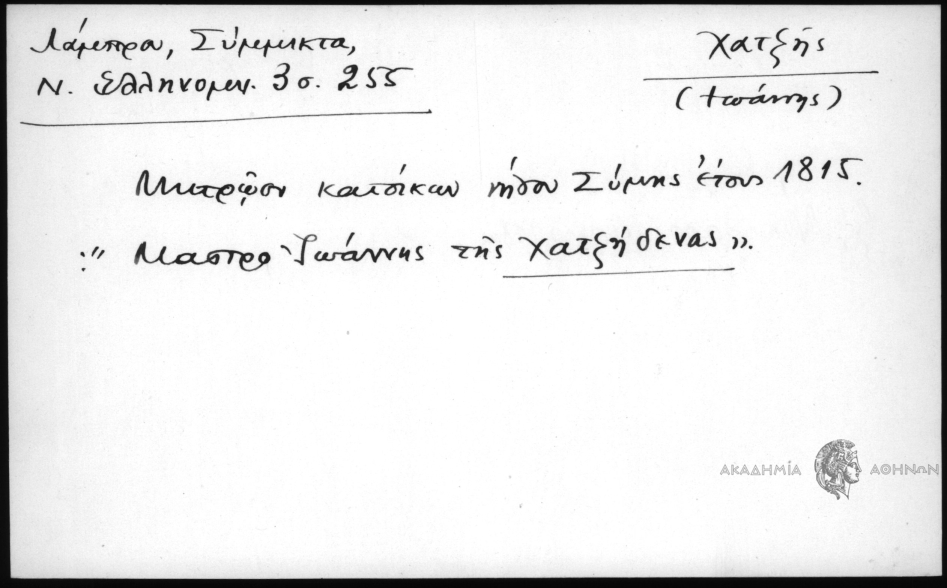 Λάμπρου, Σύμμικτα,
Ν. Ἑλληνομν. 3 σ. 255
Χατζῆς
(Ἰωάννης)
Μητρῷον κατοίκων νήσου Σύμης ἔτους 1815.
:" Μαστρο Ἰωάννης τῆς Χατζήδενας».
ΑΚΑΔΗΜΊΑ ΑΘΗΝΩΝ